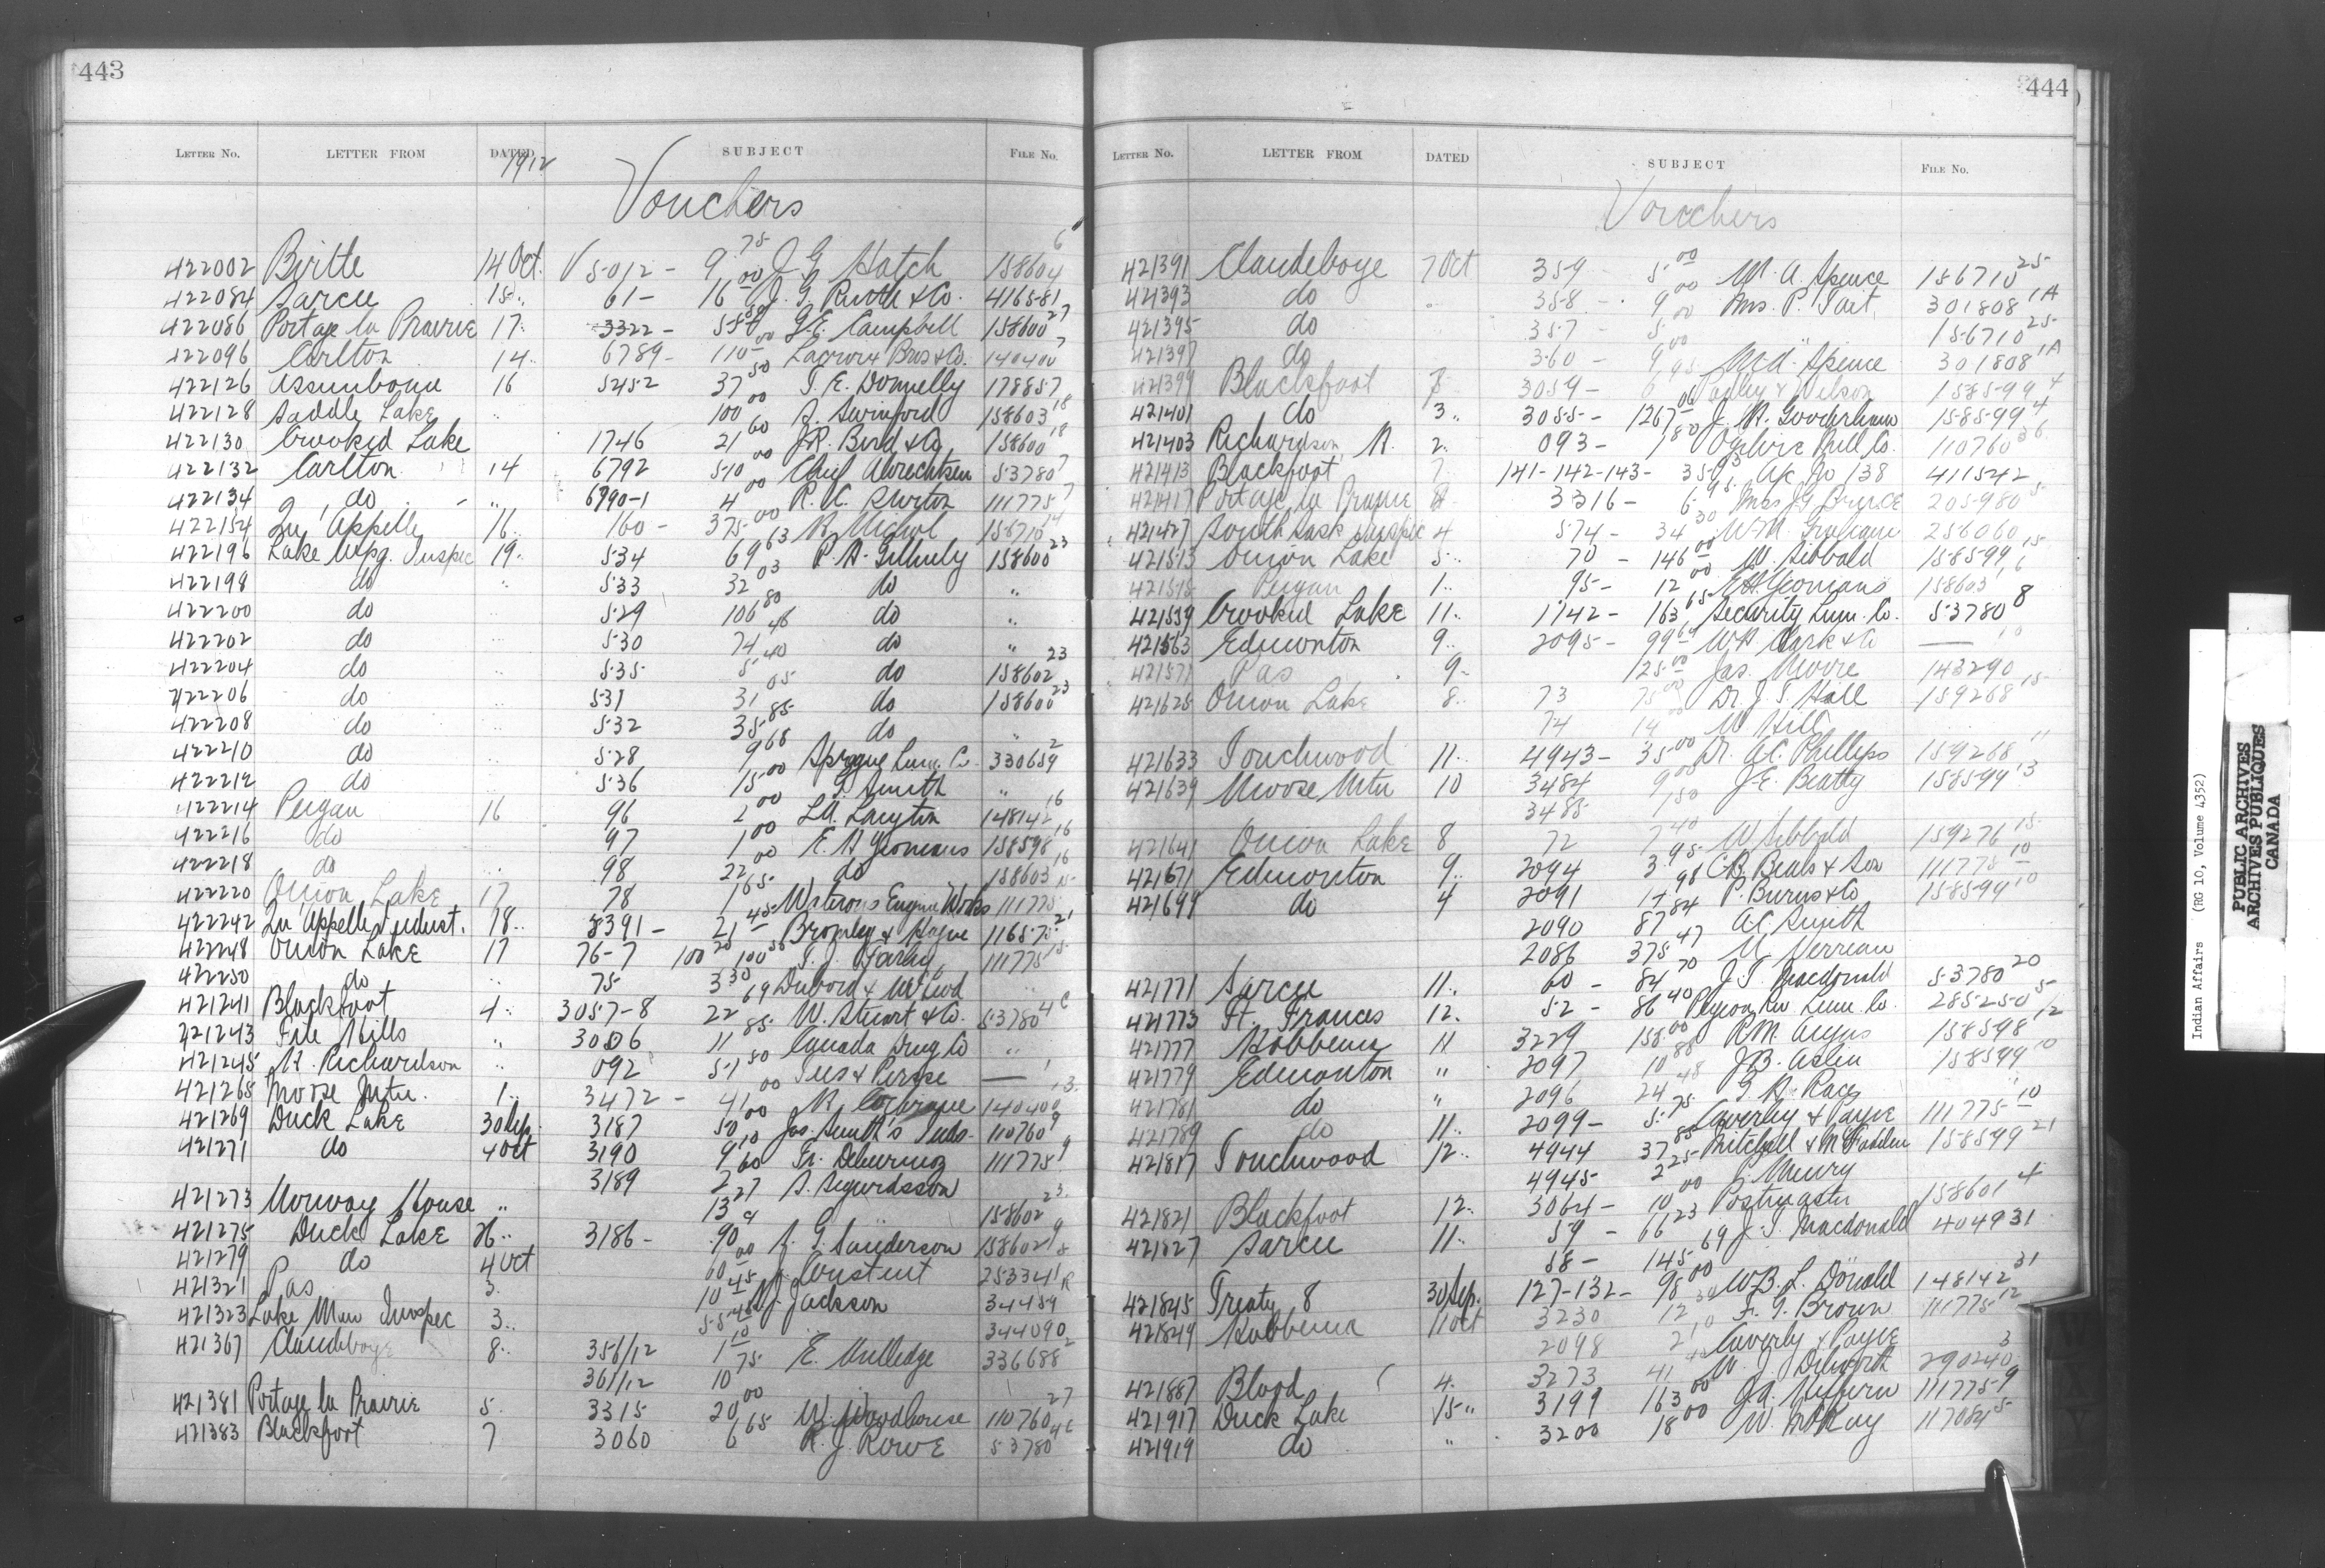 443
LETTER NO. LETTER FROM DATED SUBJECT FILE No.
1912
Vouchers
422002 Birtle 14 Oct. V 5012 - 9.75 J G Hatch 158604 6
422084 Sarcee 15 " 61 - 16.00 J. G. Ruttle & Co. 416581
422086 Portage la Prairie 17 " 3322 - G. E. Campbell 158600 27
422096 Carlton 14 " 6789 - 110.00 Lacroix Bros & Co. 140400 7
422126 Assiniboine 16 5452 37.50 T. E. Donnelly 178857
422128 Saddle Lake " 100.00 S. Swinford 158603 18
422130 Crooked Lake 1746 21.60 J.R. Bird & Co. 158600 18
422132 Carlton 14 6792 510.00 Chief 53780 7
422134 do " 6790-1 4.00 R. C. 111775 7
422154 Qu'Appelle 16 " 160 - 375.00 R. Nichol 156710 24
422196 Lake Wpg. Inspec 19 " 534 69.63 P. A. 158600 23
422198 do " 533 32.03 do "
422200 do " 529 106.80 do "
422202 do " 530 74.46 do "
422204 do " 535 5.40 do 158602 23
422206 do " 531 31.05 do 158600 23
422208 do " 532 35.85 do "
422210 do " 528 9.68 Sprague Lum. Co. 330659 2
422212 do " 536 15.00 Smith "
422214 Peigan 16 96 2.00 148142 16
422216 do 97 1.00 E. H Yeomans 158598 16
422218 do " 98 22.00 do 158603 16
422220 Onion Lake 17 78 1.65 Waterous Engine Works 111775 15
422242 Qu'Appelle Indust. 18 " 8391 - 21.45 Bromley & Hague 116575 21
422248 Onion Lake 17 76-7 T. J. Farley 111775 15
422250 do " 75 3.30 "
421241 Blackfoot 4 " 3057-8 22.69 W. Stuart & Co. 53780 4C
421243 File Hills " 3006 11.85 Canada Drug Co "
421245 H. Richardson " 092 51.80 Tees & Persse —
421265 Moose Mtn. 1 " 3472 - 41.00 R. Cochrane 140400 13
421269 Duck Lake 30 Sep. 3187 50.00 Jas. Smith's Inds. 110760 9
421271 do 4 Oct 3190 9.10 111775 9
3189 2.60 S. Sigurdsson
421273 Norway House " 13.27 158602 23
421275 Duck Lake 26 " 3186 - .90 A. G. Saunderson 158602 9
421279 do 4 Oct 60.00 J. Constant 253341
421321 Pas 3. 10.45 Jackson 34459
421323 Lake Man Inspec 3 " 344090
421367 Clandeboye 8 " 356/12 1.10 E. Milledge 336688 2
361/12 10.75
421381 Portage la Prairie 5. 3315 20.00 W. Woodhouse 110760 27
421383 Blackfoot 7 3060 6.65 R. J. Rowe 53780 4C
444
LETTER NO. LETTER FROM DATED SUBJECT FILE No.
Vouchers
421391 Clandeboye 7 Oct 359 5.00 W. A. Spence 156710 25
421393 do " 358 - 9.00 Mrs. P. Tait 301808 1A
421395 do 357 - 5.00 156710 25
421397 do 360 - 9.00 W. A. Spence 301808 1A
421399 Blackfoot 3059 - 6.95 & Nelson 158599 4
421401 do 3 " 3055 - 1267.06 J. H. Gooderham 158599 4
421403 Richardson, H. 2 " 093 - 1.80 Ogilvie Mill Co. 110760 36
421413 Blackfoot 7 141-142-143 - Ac No 138 411542
421417 Portage la Prairie 8 3316 - 6.95 Mrs J G Bruce 205980 5
421427 South Sask Inspec 4 574 - 34.30 W. M. Graham 256060
421513 Onion Lake 5 " 70 - 146.00 W. Sibbald 158599 15
421515 Peigan 1 " 95 - 12.00 E. H. Yeomans 158603 16
421559 Crooked Lake 11 " 1742 - 163.65 Security Lum. Co. 53780 8
421563 Edmonton 9 " 2095 - 99.69 W.H. Clark & Co — 10
421571 Pas 9 " 125.00 Jas. Moore 143290
421625 Onion Lake 8 " 73 75.00 Dr. J. S. Hall 159268 15
74 14.00 W Hill
421633 Touchwood 11 " 4943 - 35.00 Dr. A.C. Phillips 159268 11
421639 Moose Mtn 10 3484 9.00 J. E. Beatty 158599 13
3485 1.50
421641 Onion Lake 8 72 7.40 W Sibbald 159276 15
421671 Edmonton 9 " 2094 3.95 C. B. Beals & Son 111775 10
421699 do 4 2091 14.98 P. Burns & Co 158599 10
2090 87.84 A.C. Smith
2086 375.47
421771 Sarcee 11 " 60 - 84.70 J. S. Macdonald 53780 20
421773 Ft. Frances 12 " 52 - 86.40 Pigeon Riv Lum. Co. 285250 5
421777 Hobbema 11 3229 158.00 R.M. Angus 158598 12
421779 Edmonton " 2097 10.88 J.B. Aslin 158599 10
421781 do " 2096 24.48 G. H. Race "
421789 do 11 " 2099 - 5.75 Caverley & Payne 111775 10
421817 Touchwood 12 " 4944 37.85 Mitchell & McFadden 158599 21
4945 2.25 Murry
421821 Blackfoot 12 " 3064 - 10.00 Postmaster 158601 4
421827 Sarcee 11 " 59 - 66.23 J. S. Macdonald 404931
58 - 145.69
421845 Treaty 8 30 Sep. 127-132 - 98.00 W.B. L. Donald 148142 31
421849 Hobbema 11 Oct 3230 12.34 F. G. Brown 111775 12
2098 Caverly & Payne
421887 Blood 4. 3273 41 W. J. Dilworth 290240 3
421917 Duck Lake 15 " 3199 163.00 111775 9
421919 do " 3200 18.00 W. McKay 117084 5
Indian Affairs (RG 10, Volume 4352)
PUBLIC ARCHIVES
ARCHIVES PUBLIQUES
CANADA